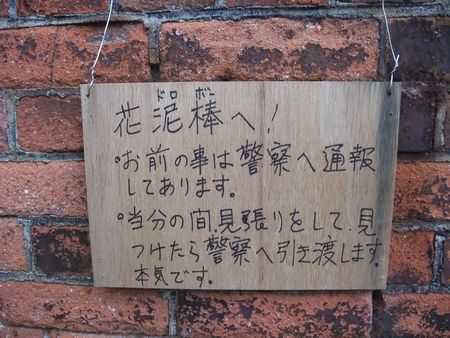 花泥棒へ！
ドロボー
・お前の事は警察へ通報
してあります。
・当分の間見張りをして、見
つけたら警察へ引き渡します。
本気です。